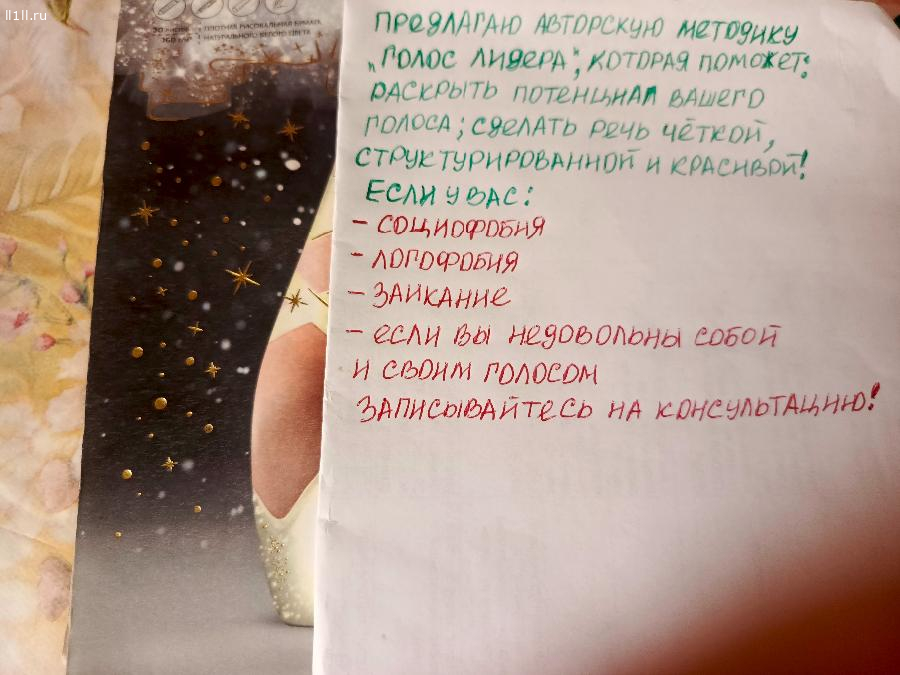 ll1ll.ru
30 листов
160 г/м²
плотная рисовальная бумага
натурального белого цвета
ПРЕДЛАГАЮ АВТОРСКУЮ МЕТОДИКУ
„ГОЛОС ЛИДЕРА", КОТОРАЯ ПОМОЖЕТ:
РАСКРЫТЬ ПОТЕНЦИАЛ ВАШЕГО
ГОЛОСА; СДЕЛАТЬ РЕЧЬ ЧЁТКОЙ,
СТРУКТУРИРОВАННОЙ И КРАСИВОЙ!
ЕСЛИ У ВАС:
– СОЦИОФОБИЯ
– ЛОГОФОБИЯ
– ЗАИКАНИЕ
– ЕСЛИ ВЫ НЕДОВОЛЬНЫ СОБОЙ
И СВОИМ ГОЛОСОМ
ЗАПИСЫВАЙТЕСЬ НА КОНСУЛЬТАЦИЮ!